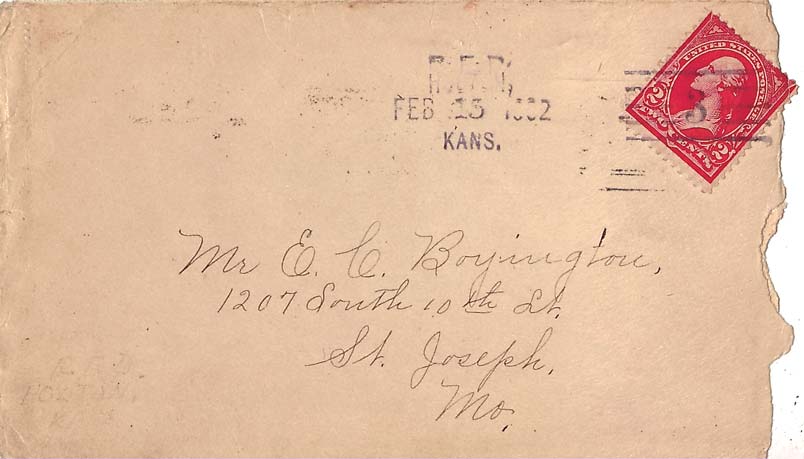 R.F.D.
HOLTON,
FEB 15 1902
KANS.
3
UNITED STATES POSTAGE
2 TWO CENTS 2
Mr E. C. Boyington,
1207 South 10th St.
St. Joseph,
Mo.
R.F.D.
HOLTON,